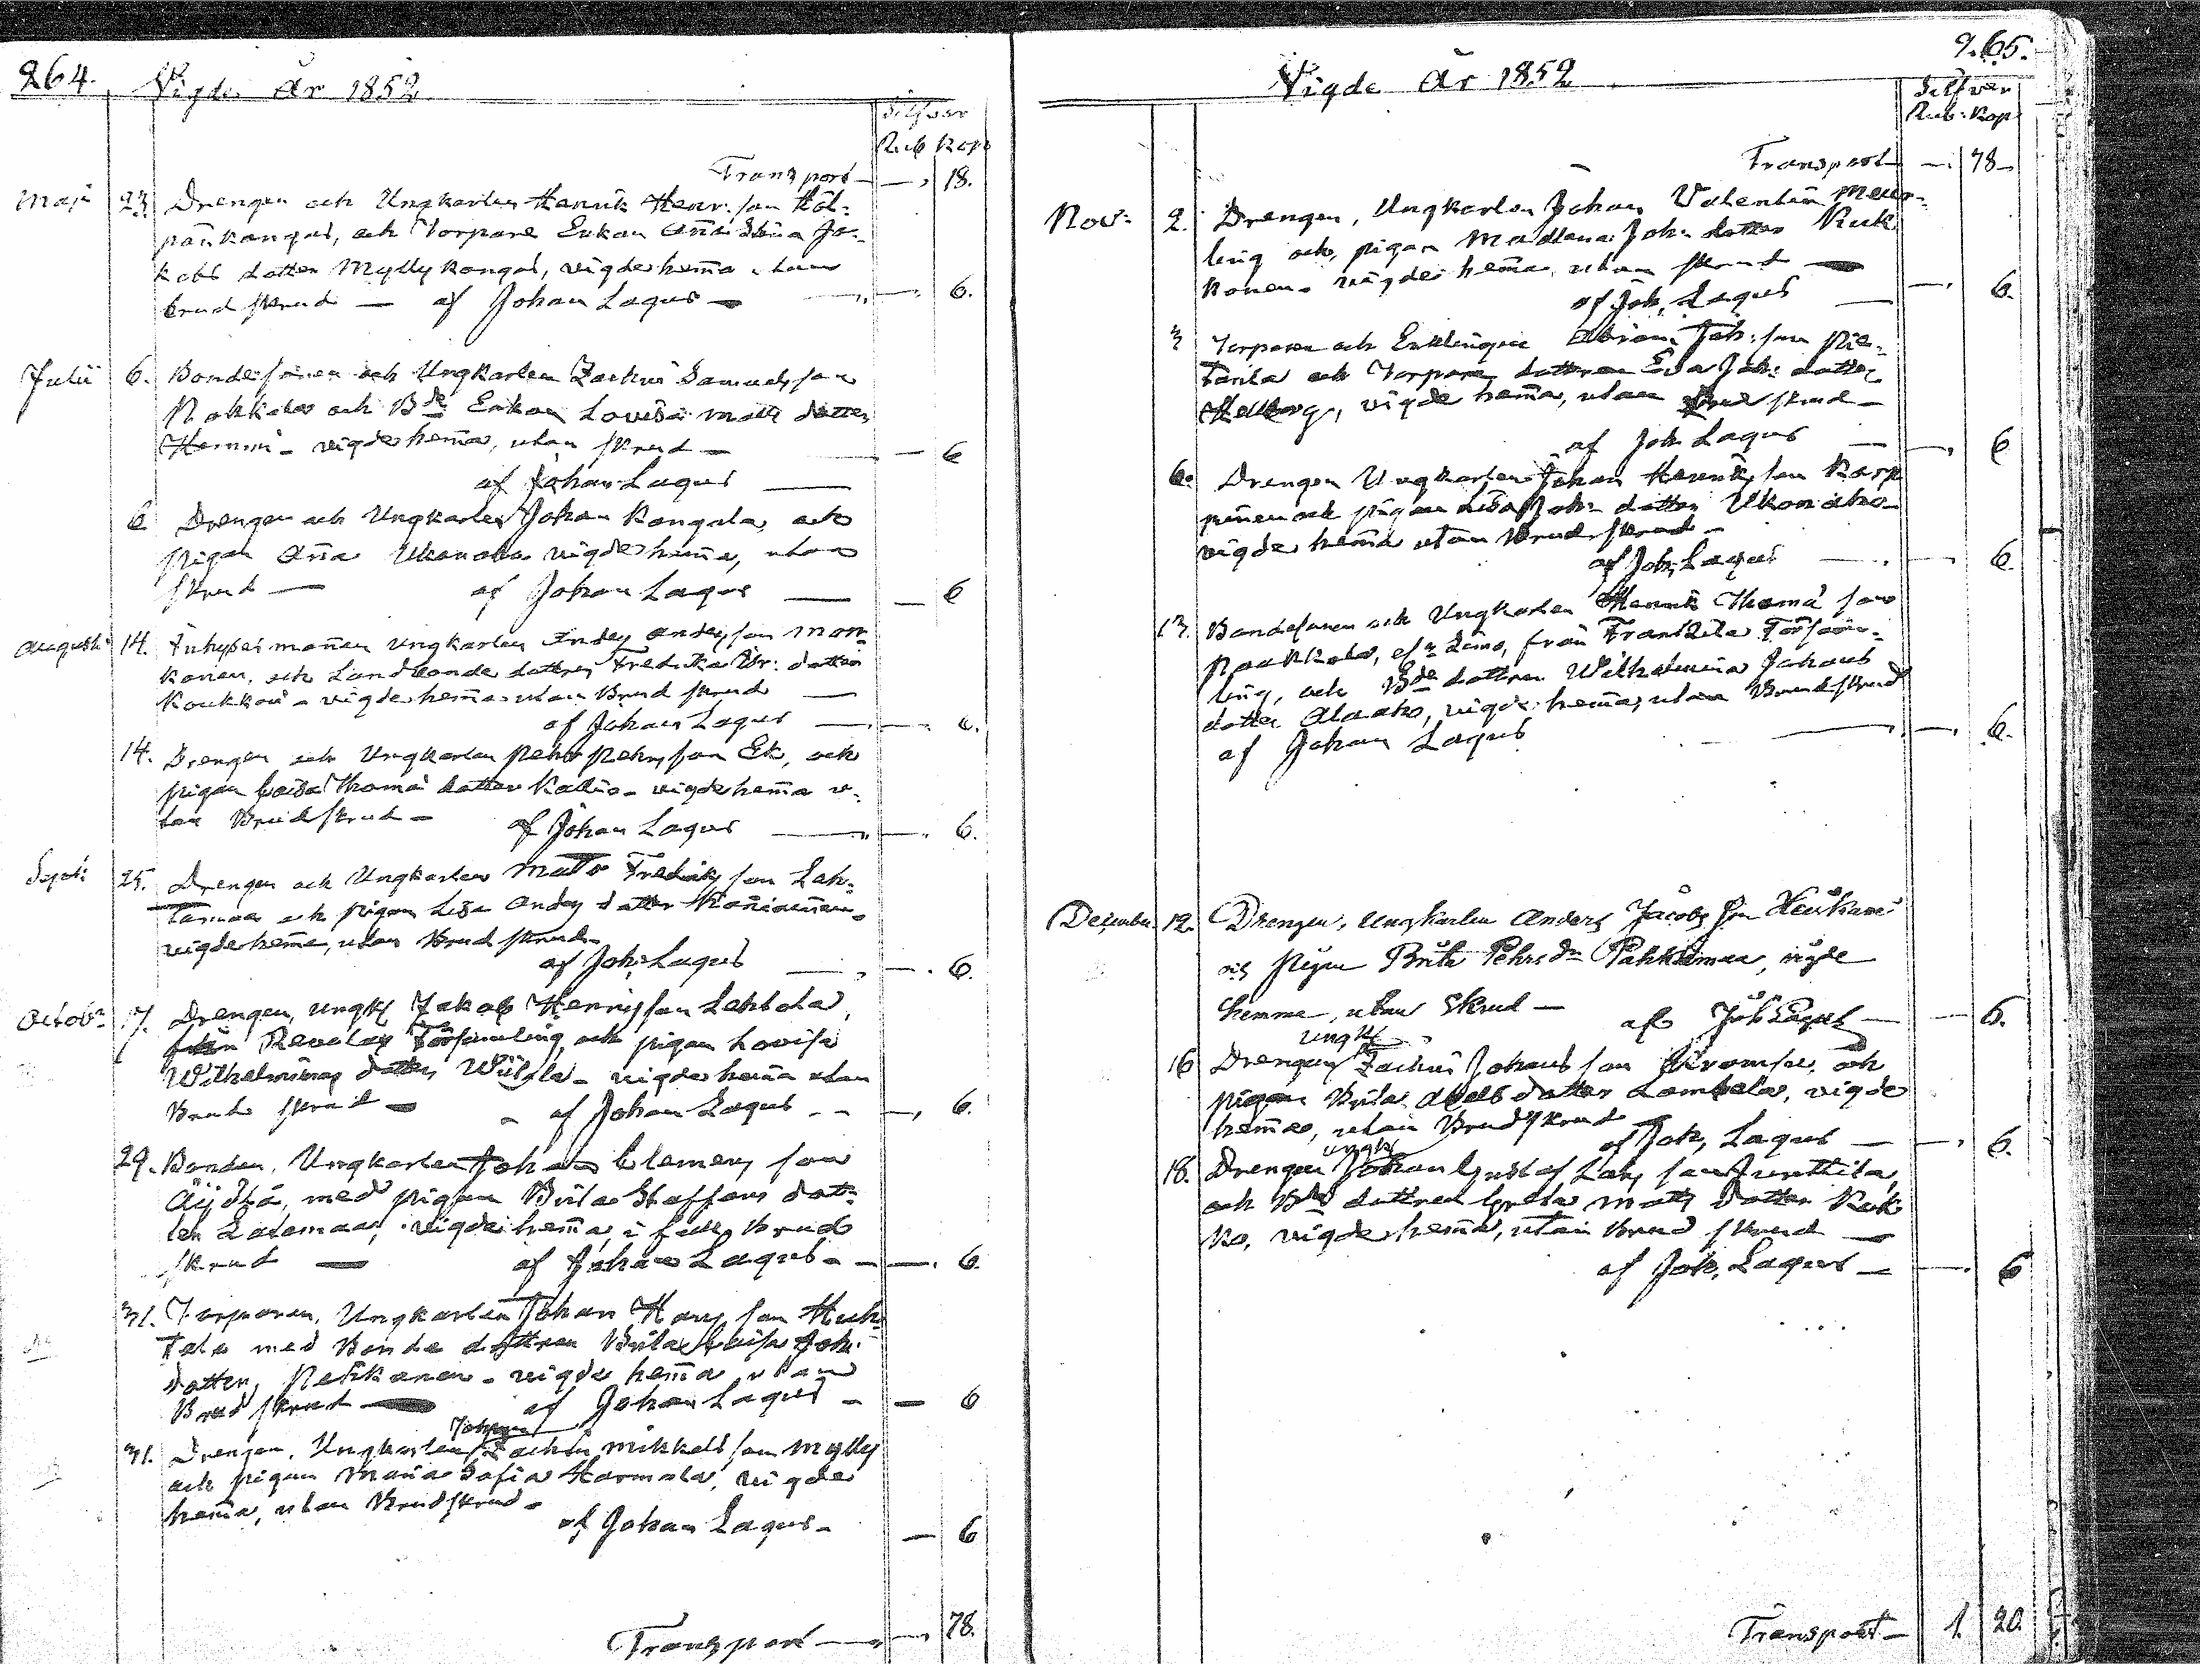 264.
Vigde År 1852
Silfver
Rub Kop
Transport — 18.
Maji 23. Drengen och Ungkarlen Henrik Henr: son Käl-
päikangas, och Torpare Enkan Aña Stina Ja-
kobs dotter Myllykangas, vigde hem̄a utan
brudskrud — af Johan Lagus — 6.
Julii 6. Bondesonen och Ungkarlen Zachris Samuelsson
och Bde Enkan Lovisa Matts dotter
Hemmi - vigde hem̄a, utan skrud —
af Johan Lagus — 6
6 Drengen och Ungkarlen Johan Kangala, och
pigan Aña Ukonaho vigde hem̄a, utan
skrud — af Johan Lagus — 6
Augusti 14. Inhyses mañen Ungkarlen Anders Andersson Mon-
konen, och Landbonde dottren Fredrika Gr: dotter
Koukkari - vigde hem̄a utan Brud skrud —
af Johan Lagus — 6.
14. Drengen och Ungkarlen Pehr Pehrsson Ek, och
pigan Caisa Thomæ dotter Kallio - vigde hem̄a u-
tan Brudskrud - af Johan Lagus — 6.
Sept: 25. Drengen och Ungkarlen Matts Fredriksson Lah-
och pigan Lisa Anders dotter
vigde hem̄a, utan Brud skrud -
af Joh: Lagus — 6.
Octobr 17. Drengen, Ungk: Jakob Henriksson Lahtola,
från Revolax Församling, och pigan Lovisa
Wilhelmina dotter - vigde hem̄a utan
Brud skrud — af Johan Lagus - — 6.
29. Bonden, Ungkarlen Johan Clemens son
Äijälä, med pigan Brita Staffans dot-
ter vigde hem̄a, i full Brud
skrud — af Johan Lagus - — 6.
31. Torparen, Ungkarlen Johan Hans son Huh-
tala med Bonde dottren Brita Caisa Joh:
dotter, - vigde hem̄a utan
Brud skrud — af Johan Lagus - — 6
Johan
31. Drengen, Ungkarlen Zachris Mikkels son Mylly
och pigan Maria Sofia Harmala, vigde
hem̄a, utan Brudskrud -
af Johan Lagus - — 6
Transport — 78.
265.
Vigde År 1852
Silfver
Rub: Kop
Transport — 78
Nov: 2. Drengen, Ungkarlen Johan Valentin Meur-
ling och, pigan Madlena Joh: dotter Ruk
konen - vigde hem̄a, utan skrud —
af Joh. Lagus — 6.
3 Torparen och Enklingen Abram Joh: son Pie-
tarila och Torpare dottren Eva Joh: dotter
Hedberg, vigde hem̄a, utan Brud skrud —
af Joh Lagus — 6
6. Drengen Ungkarlen Johan Henriks son Karp
pinen och pigan Lisa Joh: dotter Ukonaho -
vigde hem̄a utan Brudskrud -
af Joh. Lagus — 6.
13. Bondesonen och Ungkarlen Henrik Thomæ son
från Frantzila Försam-
ling, och Bde dottren Wilhelmina Johans
dotter Alaaho, vigde hem̄a, utan Brudskrud
af Johan Lagus — 6.
December 12. Drengen, Ungkarlen Anders Jacobs son
pigan Brita Pehrs dr vigde
hemma, utan Skrud — af Joh Lagus — 6.
Ungk
16 Drengen Zachris Johans son Kromsu, och
pigan Brita Abels dotter Lampela, vigde
hem̄a, utan Brudskrud
af Joh, Lagus — 6.
Ungk
18. Drengen Johan Gustaf Lars son Junttila,
och Bde dottren Greta Matts dotter Ruk
ko, vigde hem̄a, utan brud skrud —
af Joh. Lagus — 6
Transport — 1. 20.